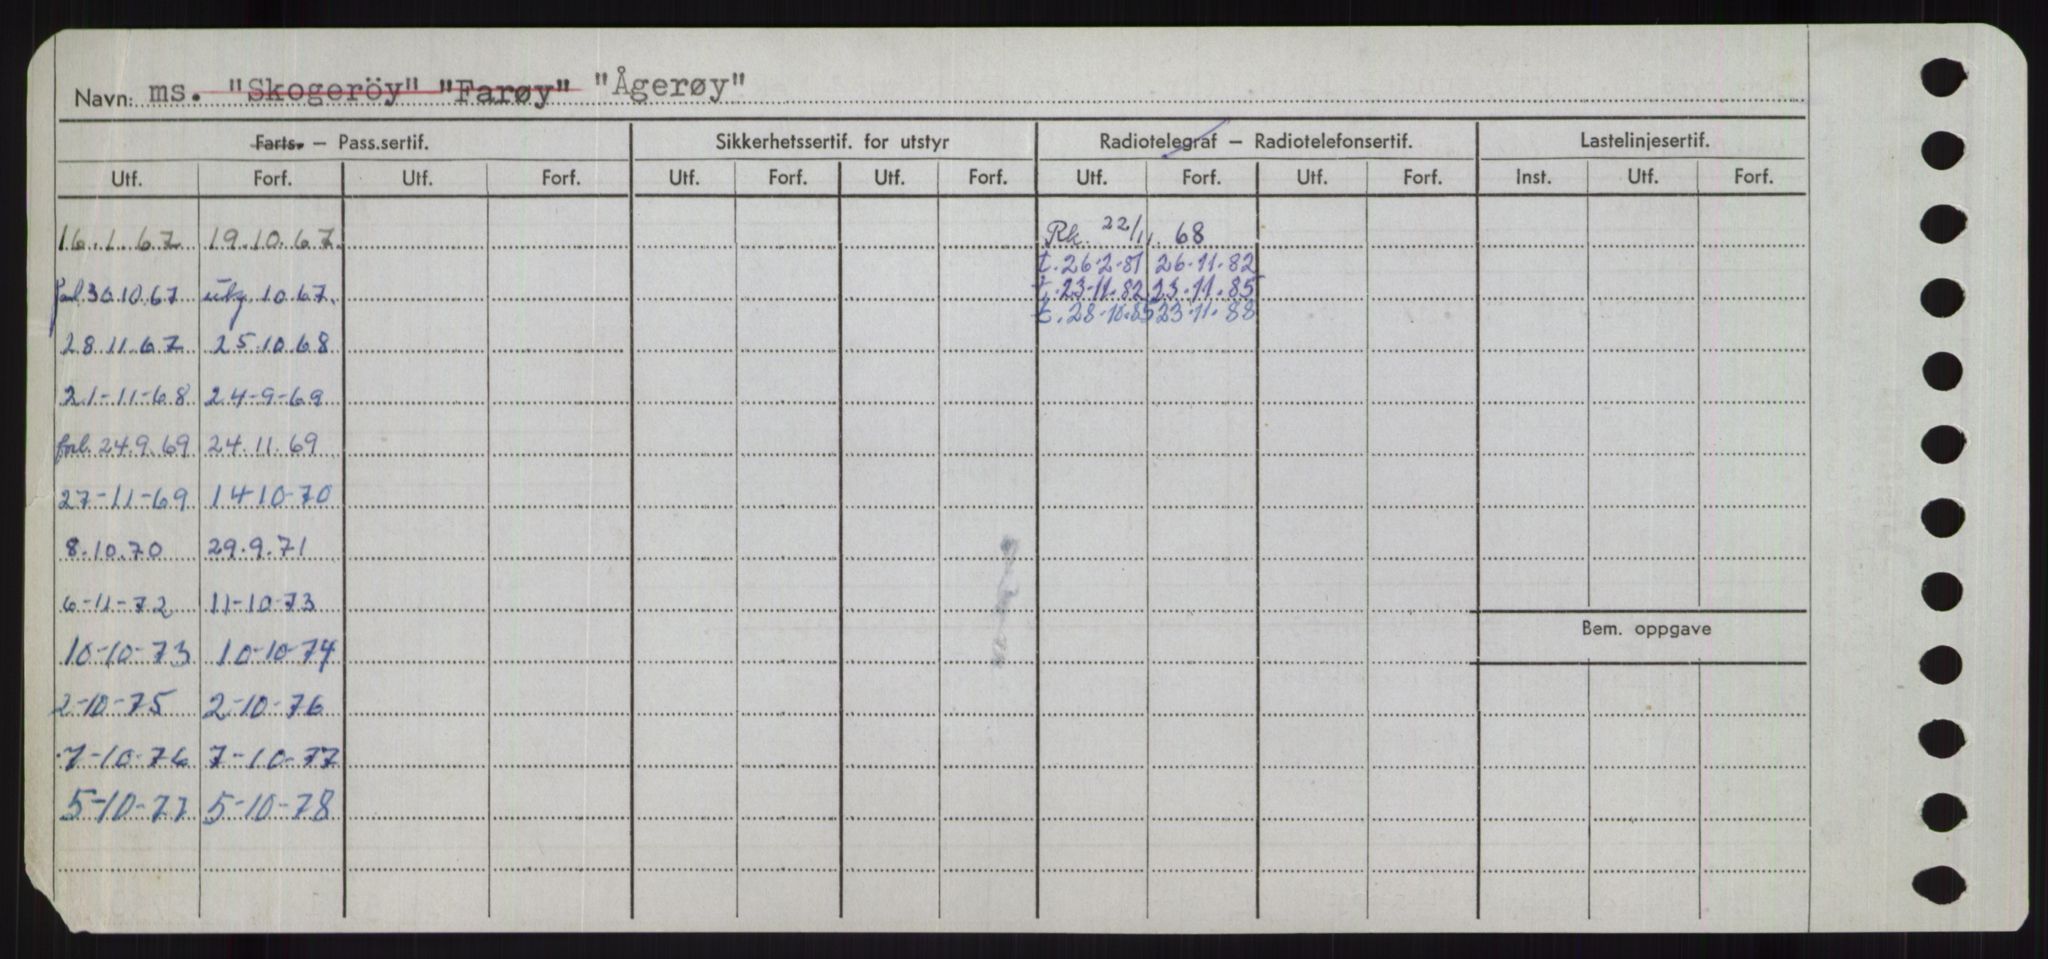 Navn: ms. "Skogeröy" "Farøy" "Ågerøy"
Farts. — Pass.sertif. Sikkerhetssertif. for utstyr Radiotelegraf — Radiotelefonsertif. Lastelinjesertif.
Utf. Forf. Utf. Forf. Utf. Forf. Utf. Forf. Utf. Forf. Utf. Forf. Inst. Utf. Forf.
16.1.67 19.10.67. Rk. 22/11. 68
t. 26-2-81 26-11-82
30.10.67 utg. 10.67. t. 23-11-82 23-11-85
t. 28-10-85 23-11-88
28.11.67 25.10.68
21-11-68 24-9-69
forl. 24.9.69 24.11.69
27-11-69 14-10-70
8.10.70 29.9.71
6-11-72 11-10-73
Bem. oppgave
10-10-73 10-10-74
2-10-75 2-10-76
7-10-76 7-10-77
5-10-77 5-10-78